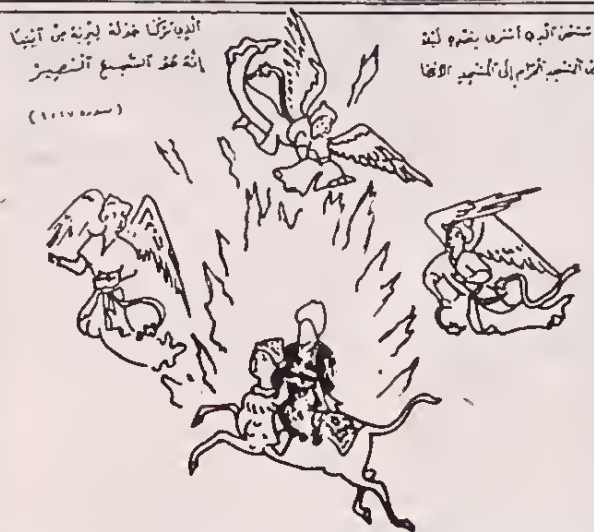 سُبْحَنَ ٱلَّذِى أَسْرَى بِعَبْدِهِ لَيْلًا
ٱلْمَسْجِدِ ٱلْحَرَامِ إِلَى ٱلْمَسْجِدِ ٱلْأَقْصَا
ٱلَّذِى بَرَكْنَا حَوْلَهُ لِنُرِيَهُ مِنْ ءَايَتِنَا
إِنَّهُ هُوَ ٱلسَّمِيعُ ٱلْبَصِيرُ
(سوره